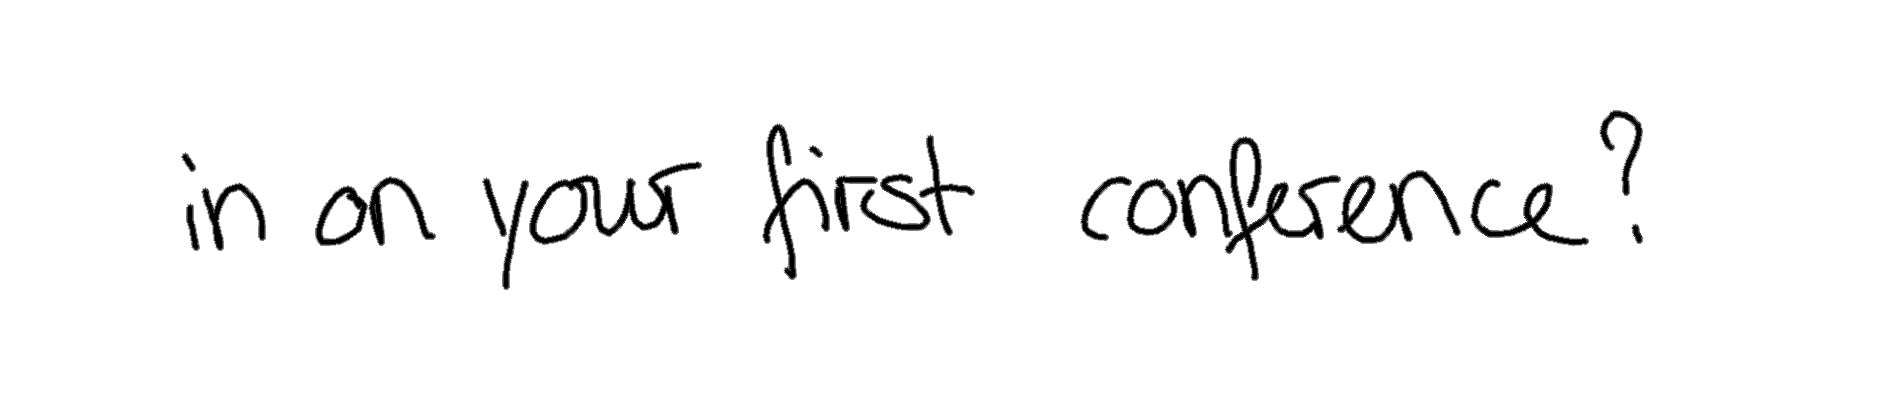 in on your first conference?